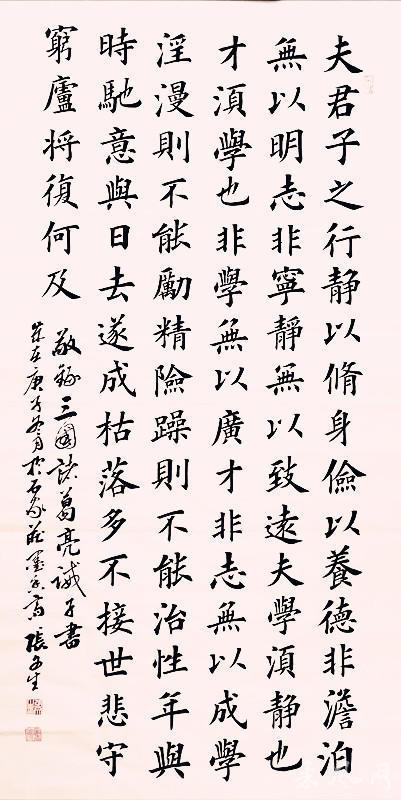 夫君子之行静以脩身儉以養德非澹泊
無以明志非寧靜無以致遠夫學須靜也
才須學也非學無以廣才非志無以成學
淫漫則不能勵精險躁則不能治性年與
時馳意與日去遂成枯落多不接世悲守
窮廬將復何及
敬錄三國諸葛亮誡子書
歲在庚子冬月於石家莊墨香齋張文生